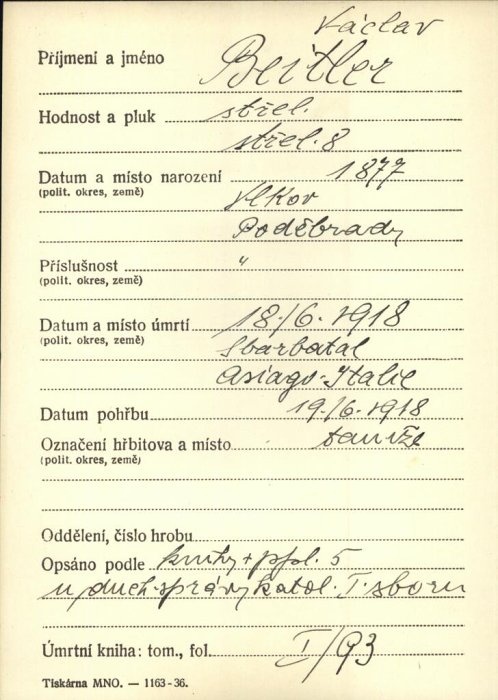 Václav
Příjmení a jméno Beitler
Hodnost a pluk střel.
střel. 8
Datum a místo narození 1877
(polit. okres, země) Vlkov
Poděbrady
Příslušnost "
(polit. okres, země)
Datum a místo úmrtí 18./6. 1918
(polit. okres, země) Sbarbatal
Asiago-Italie
Datum pohřbu 19./6. 1918
Označení hřbitova a místo tamže
(polit. okres, země)
Oddělení, číslo hrobu
Opsáno podle knihy + 5
duch. správy katol. I. sboru
Úmrtní kniha: tom., fol. I/93
Tiskárna MNO. — 1163-36.